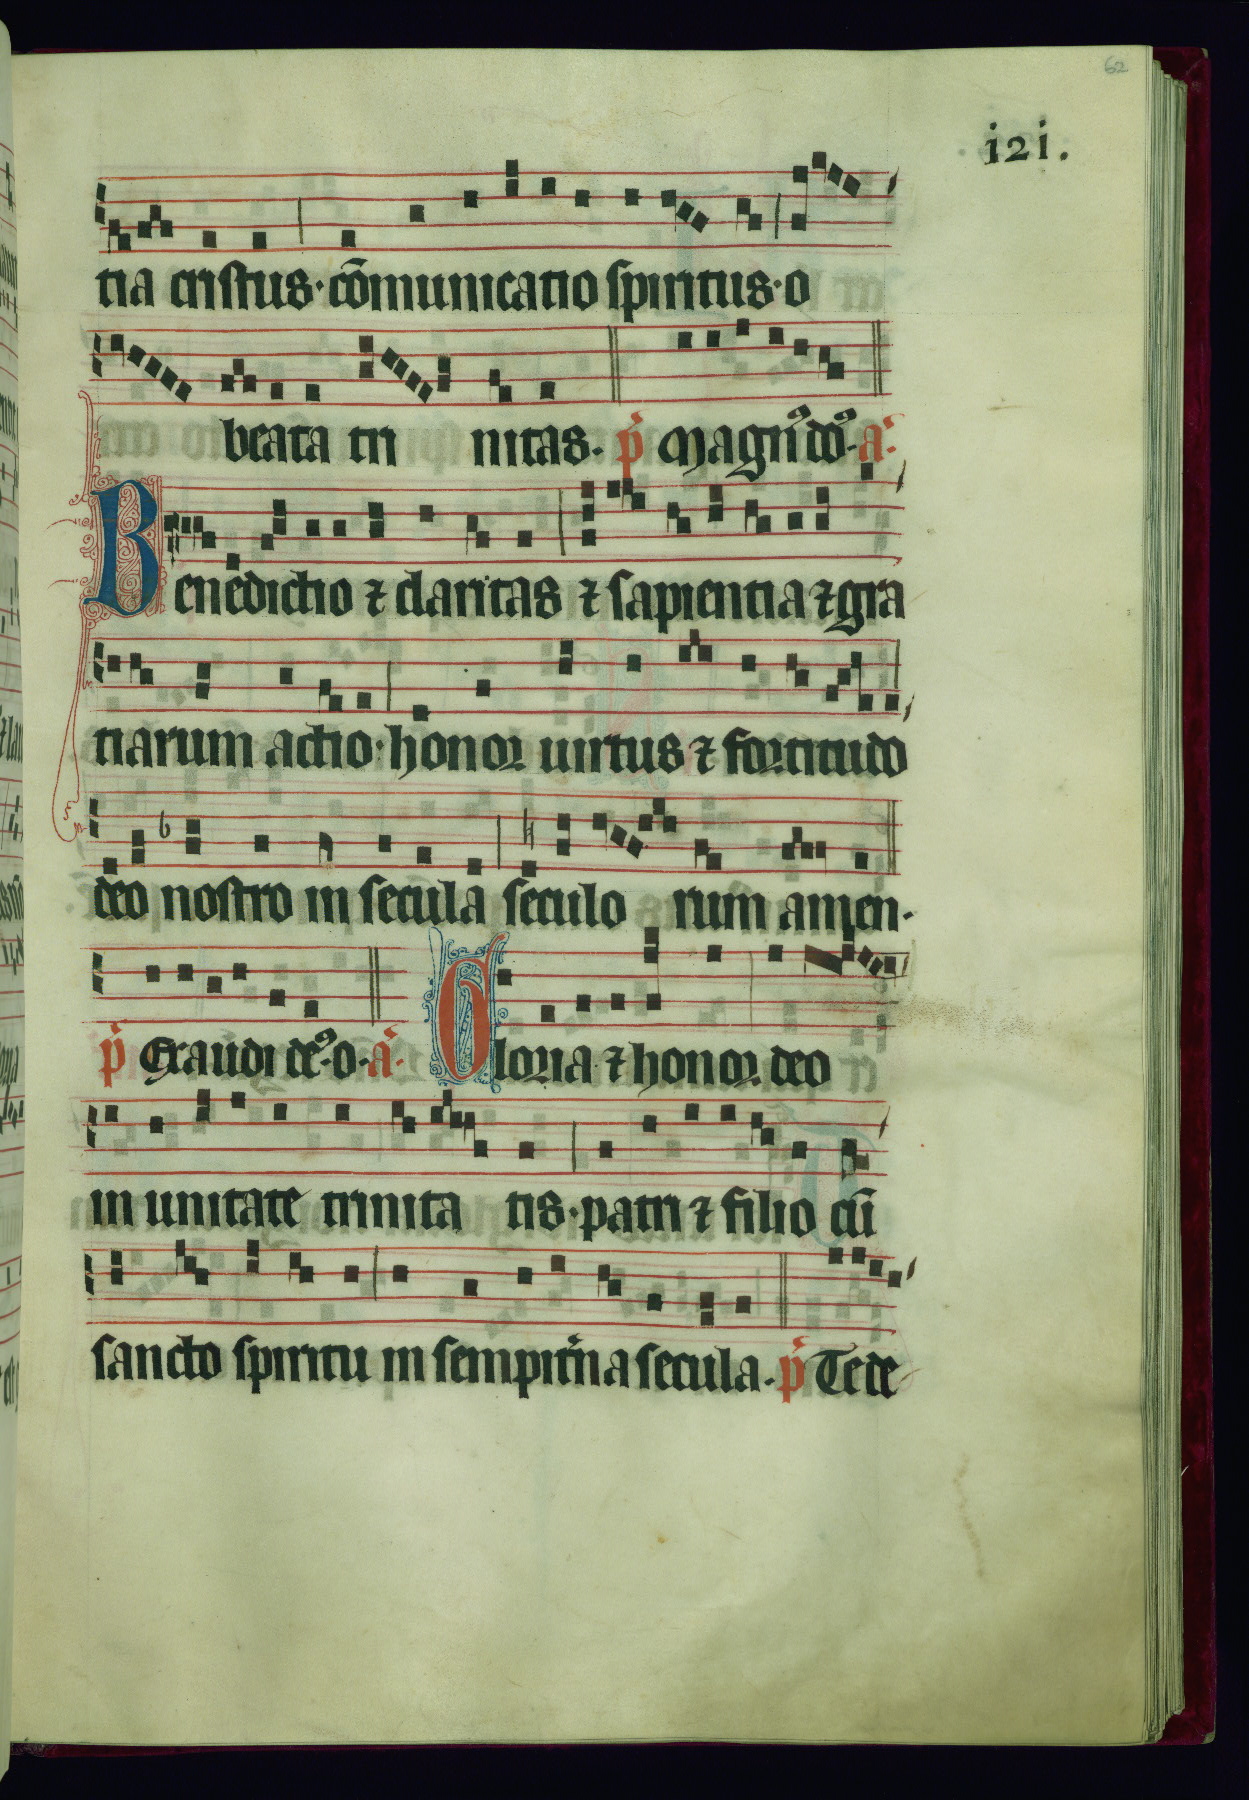 62
i2i.
tia cristus · cōmunicatio spiritus · o
beata tri nitas. p̄ Magn̄ do͛. a͛.
Benedictio ⁊ claritas ⁊ sapientia ⁊ gra
tiarum actio · honor uirtus ⁊ fortitudo
deo nostro in secula seculo rum amen.
p̄ Exaudi de͛. o. a͛. Gloria ⁊ honor deo
in unitate trinita tis · patri ⁊ filio cū
sancto spiritu in sempit͛na secula. p̄ Te de